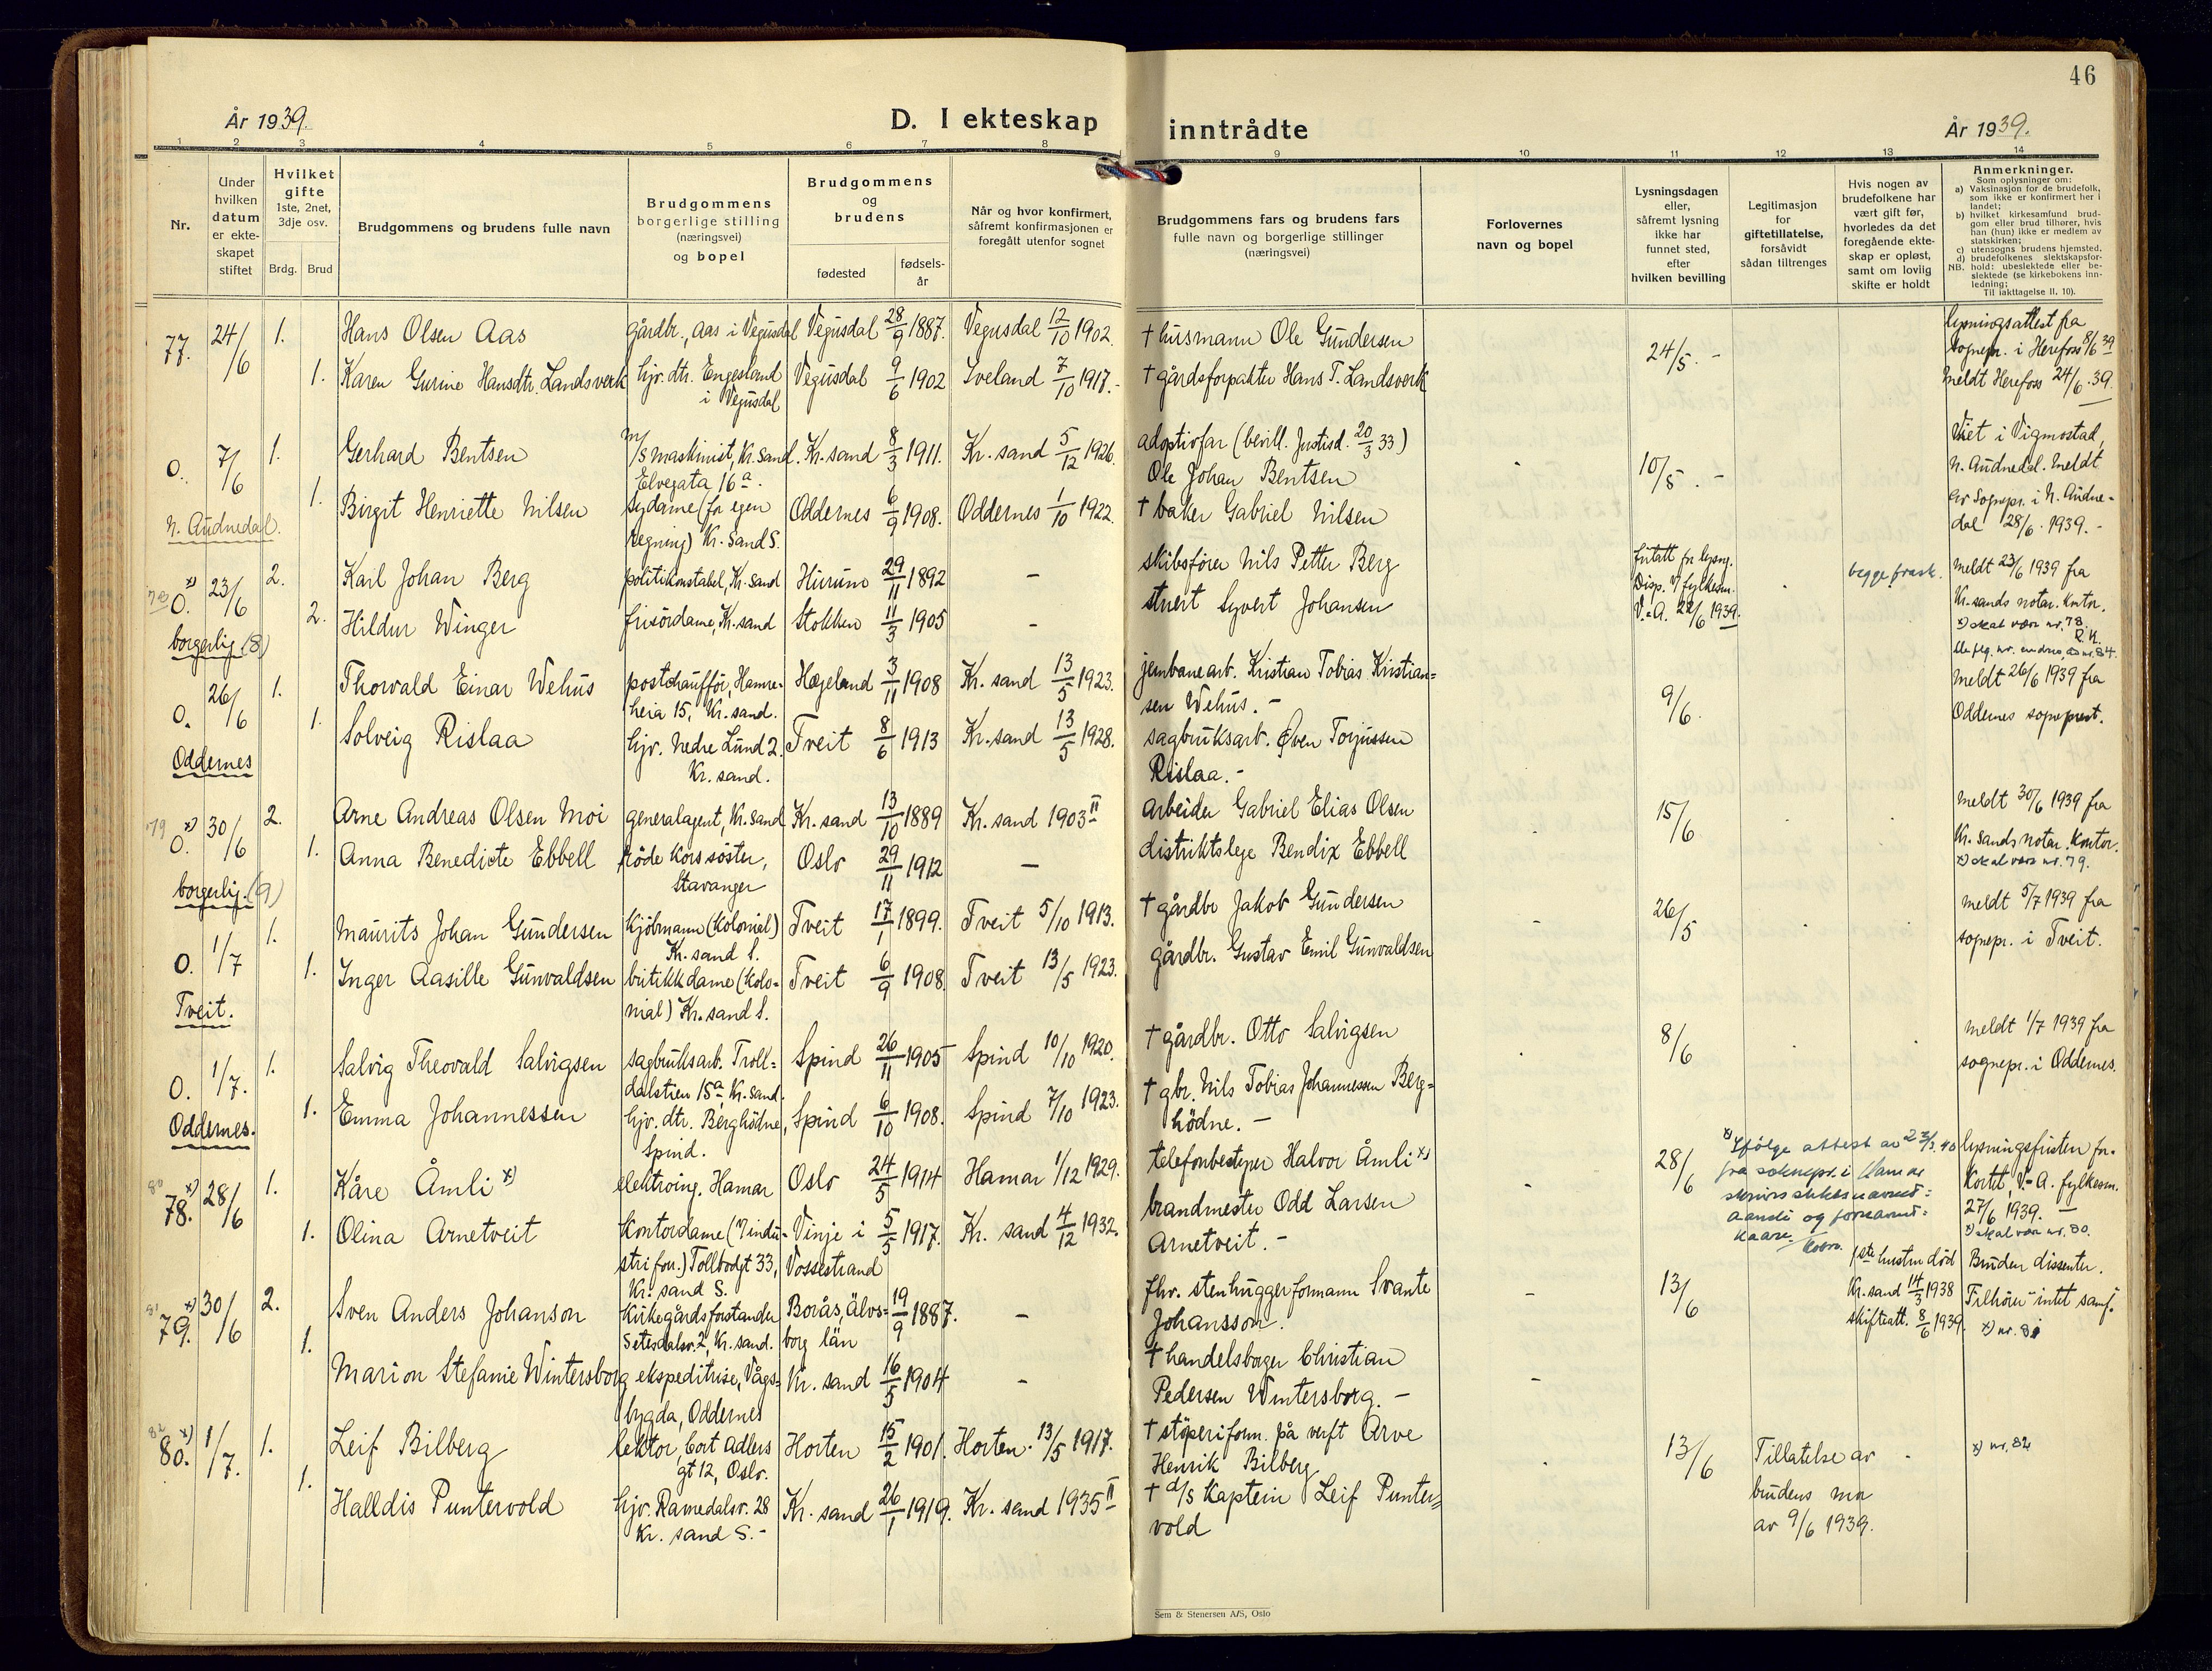 46
År 1939.
D. I ekteskap inntrådte
År 1939.
1 2 3 4 5 6 7 8 9 10 11 12 13 14
Nr.
Under hvilken datum er ekteskapet stiftet
Hvilket gifte 1ste, 2net, 3dje osv.
Brdg. Brud
Brudgommens og brudens fulle navn
Brudgommens borgerlige stilling (næringsvei) og bopel
Brudgommens og brudens
fødested
fødselsår
Når og hvor konfirmert, såfremt konfirmasjonen er foregått utenfor sognet
Brudgommens fars og brudens fars fulle navn og borgerlige stillinger (næringsvei)
Forlovernes navn og bopel
Lysningsdagen eller, såfremt lysning ikke har funnet sted, efter hvilken bevilling
Legitimasjon for giftetillatelse, forsåvidt sådan tiltrenges
Hvis nogen av brudefolkene har vært gift før, hvorledes da det foregående ekteskap er opløst, samt om lovlig skifte er holdt
Anmerkninger.
Som oplysninger om:
a) Vaksinasjon for de brudefolk, som ikke er konfirmert her i landet;
b) hvilket kirkesamfund brudgom eller brud tilhører, hvis han (hun) ikke er medlem av statskirken;
c) utensogns brudens hjemsted.
d) brudefolkenes slektskapsforhold: ubeslektede eller beslektede (se kirkebokens innledning;
NB.
Til iakttagelse II. 10).
77. 24/6 1. Hans Olsen Aas gårdbr., Aas i Vegusdal Vegusdal 28/9 1887. Vegusdal 12/10 1902. † husmann Ole Gundersen 24/5. - lysningsattest fra
sognepr. i Herefoss 8/6 39
1. Karen Gurine Hansdtr. Landsverk hjv. dtr. Engesland i Vegusdal Vegusdal 9/6 1902 Iveland 7/10 1917. - † gårdsforpakter Hans T. Landsverk meldt Herefoss 24/6.39.
0. 7/6 1. Gerhard Bentsen m/s maskinist, Kr. sand. Elvegata 16a. Kr. sand 8/3 1911. Kr. sand 5/12 1926. adoptivfar (bevill. Justisd. 20/3 33)
Ole Johan Bentsen 10/5. - Viet i Vigmostad,
N. Audnedal. Meldt
1. Birgit Henriette Nilsen sydame (for egen regning) Kr. Sand S. Oddernes 6/9 1908. Oddernes 1/10 1922. † baker Gabriel Nilsen av Sognepr. i N. Audne-
dal 28/6 1939. -
N. Audnedal.
78 0. x) 23/6 2. Karl Johan Berg politikonstabel, Kr. sand Hurum 29/11 1892 - skibsfører Nils Petter Berg fritatt for lysng.
Disp. V/ fylkesm.
V.-A. 22/6 1939. begge frask. meldt 23/6 1939 fra
Kr. sands notar. kntor.
x) skal være nr. 78.
2. Hildur Winger frisørdame, Kr. sand Stokken 11/3 1905 - stuert Syvert Johansen
borgerlig (8)
0. 26/6 1. Thorvald Einar Wehus postchauffør, Hamreheia 15, Kr. sand. Hægeland 3/11 1908 Kr. sand 13/5 1923. jernbanearb. Kristian Tobias Kristian-
sen Wehus. - 9/6. meldt 26/6 1939 fra
Oddernes sogneprest.
1. Solveig Rislaa hjv. Nedre Lund 2. Kr. sand. Tveit 8/6 1913 Kr. sand 13/5 1928. sagbruksarb. Øven Torjussen
Rislaa. -
Oddernes
79 0. x) 30/6 2. Arne Andreas Olsen Moi generalagent, Kr. sand Kr. sand 13/10 1889 Kr. sand 1903 II arbeider Gabriel Elias Olsen 15/6 meldt 30/6 1939 fra
Kr. Sands notar. kontor.
x) skal være nr. 79.
1. Anna Benedicte Ebbell røde kors søster, Stavanger Oslo 29/11 1912 - distriktslege Bendix Ebbell
borgerlig. (9)
0. 1/7 1. Maurits Johan Gundersen kjøbmann (kolonial) Kr. sand S. Tveit 17/1 1899. Tveit 5/10 1913. † gårdbr Jakob Gundersen 26/5 meldt 5/7 1939 fra
sognepr. i Tveit.
1. Inger Aasille Gunvaldsen butikkdame (kolonial) Kr. sand S. Tveit 6/9 1908. Tveit 13/5 1923. gårdbr. Gustav Emil Gunvaldsen
Tveit.
0. 1/7. 1. Salvig Theovald Salvigsen sagbruksarb. Trolldalstien 15a, Kr. sand. Spind 26/11 1905 Spind 10/10 1920. † gårdbr. Otto Salvigsen 8/6 meldt 1/7 1939 fra
sognepr. i Oddernes.
1. Emma Johannessen hjv. dtr. Berghødne, Spind. Spind 6/10 1908. Spind 7/10 1923. † gbr. Nils Tobias Johannessen Berg-
hødne. -
Oddernes.
80 78. x) 28/6 1. Kåre Åmli x) elektroing. Hamar Oslo 24/5 1914 Hamar 1/12 1929. telefonbestyrer Halvor Åmli x) 28/6 x) Ifølge attest av
fra soknepr. i Hamar
skrives slektsnavnet:
Aamli og fornavnet:
Kaare. lysningsfristen for-
kortet, V.-A. fylkesm.
27/6 1939. -
x) skal være nr. 80.
1. Olina Arnetveit kontordame (v/ industri forr.) Tollbodgt 33, Kr. sand S. Vinje i Vossestrand 5/5 1917. Kr. sand 4/12 1932. brandmester Odd Larsen
Arnetveit. -
81 79. x) 30/6 2. Sven Anders Johanson kirkegårdsforstander Setesdalsv. 2, Kr. sand. Borås, Älvsborg län 19/9 1887. - fhv. stenhuggerformann Svante
Johansson. 13/6 1ste hustru död
Kr. sand 14/3 1938
skifteatt. 8/6 1939. Bruden dissenter.
Tilhører intet samf.
x) nr. 81
1. Marion Stefanie Wintersborg ekspeditrise, Vågsbygda, Oddernes Kr. sand 16/5 1904 - † handelsborger Christian
Pedersen Wintersborg. -
82 80. x) 1/7. 1. Leif Bilberg lektor, Cort Adlers gt 12, Oslo. Horten 15/2 1901. Horten. 13/5 1917. † støperiform. på verft Arve
Henrik Bilberg 13/6 Tillatelse av
brudens mor
av 9/6 1939. x) nr. 82
1. Halldis Puntervold hjv. Ramedalsv. 28 Kr. sand S. - Kr. sand 26/1 1919. Kr. sand 1935 II † d/s kaptein Leif Punter-
vold
Sem & Stenersen A/S, Oslo